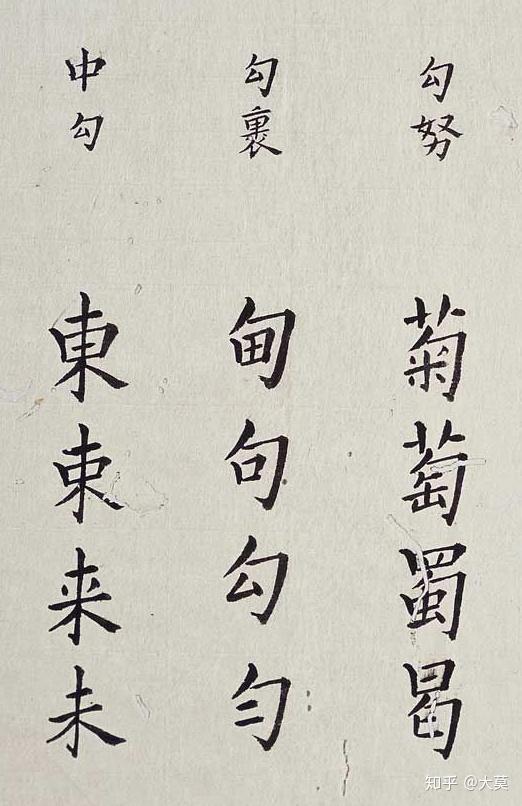 勾努
菊萄蜀曷
勾裹
甸句勾勻
中勾
東束来未
知乎 @大莫